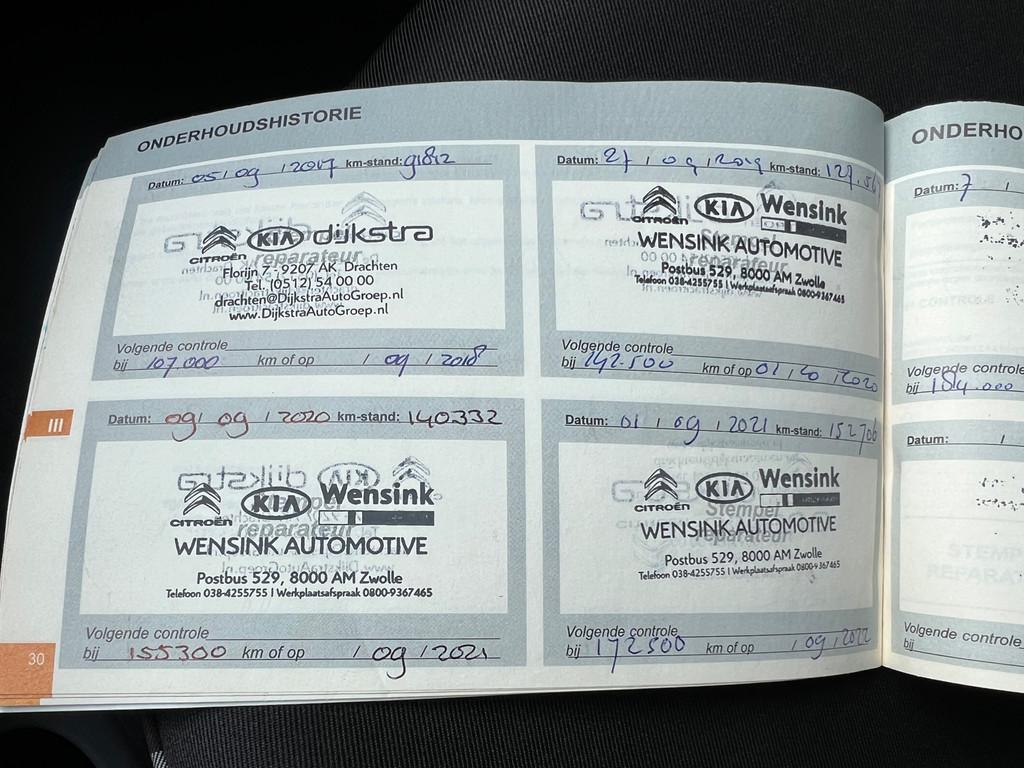 ONDERHOUDSHISTORIE
Datum: 05 / 09 / 2017 km-stand: 91812
CITROËN KIA dijkstra
reparateur
Florijn 7 - 9207 AK Drachten
Tel. (0512) 54 00 00
drachten@DijkstraAutoGroep.nl
www.DijkstraAutoGroep.nl
Volgende controle
bij 107.000 km of op / 09 / 2018
Datum: 27 / 09 / 2019 km-stand:
CITROËN KIA Wensink
Stempel
WENSINK AUTOMOTIVE
reparateur
Postbus 529, 8000 AM Zwolle
Telefoon 038-4255755 | Werkplaatsafspraak 0800-9367465
Volgende controle
bij 142.500 km of op 01 / 10 / 2020
Datum: 09 / 09 / 2020 km-stand: 140332
CITROËN KIA Wensink
Stempel
reparateur
WENSINK AUTOMOTIVE
Postbus 529, 8000 AM Zwolle
Telefoon 038-4255755 | Werkplaatsafspraak 0800-9367465
Volgende controle
bij 155300 km of op / 09 / 2021
Datum: 01 / 09 / 2021 km-stand: 152706
CITROËN KIA Wensink
Stempel
WENSINK AUTOMOTIVE
reparateur
Postbus 529, 8000 AM Zwolle
Telefoon 038-4255755 | Werkplaatsafspraak 0800-9367465
Volgende controle
bij 172500 km of op / 09 / 2022
III
30
ONDERHO
Datum: 7 /
Volgende controle
bij 184.000
Datum: /
STEMP
REPARA
Volgende controle
bij